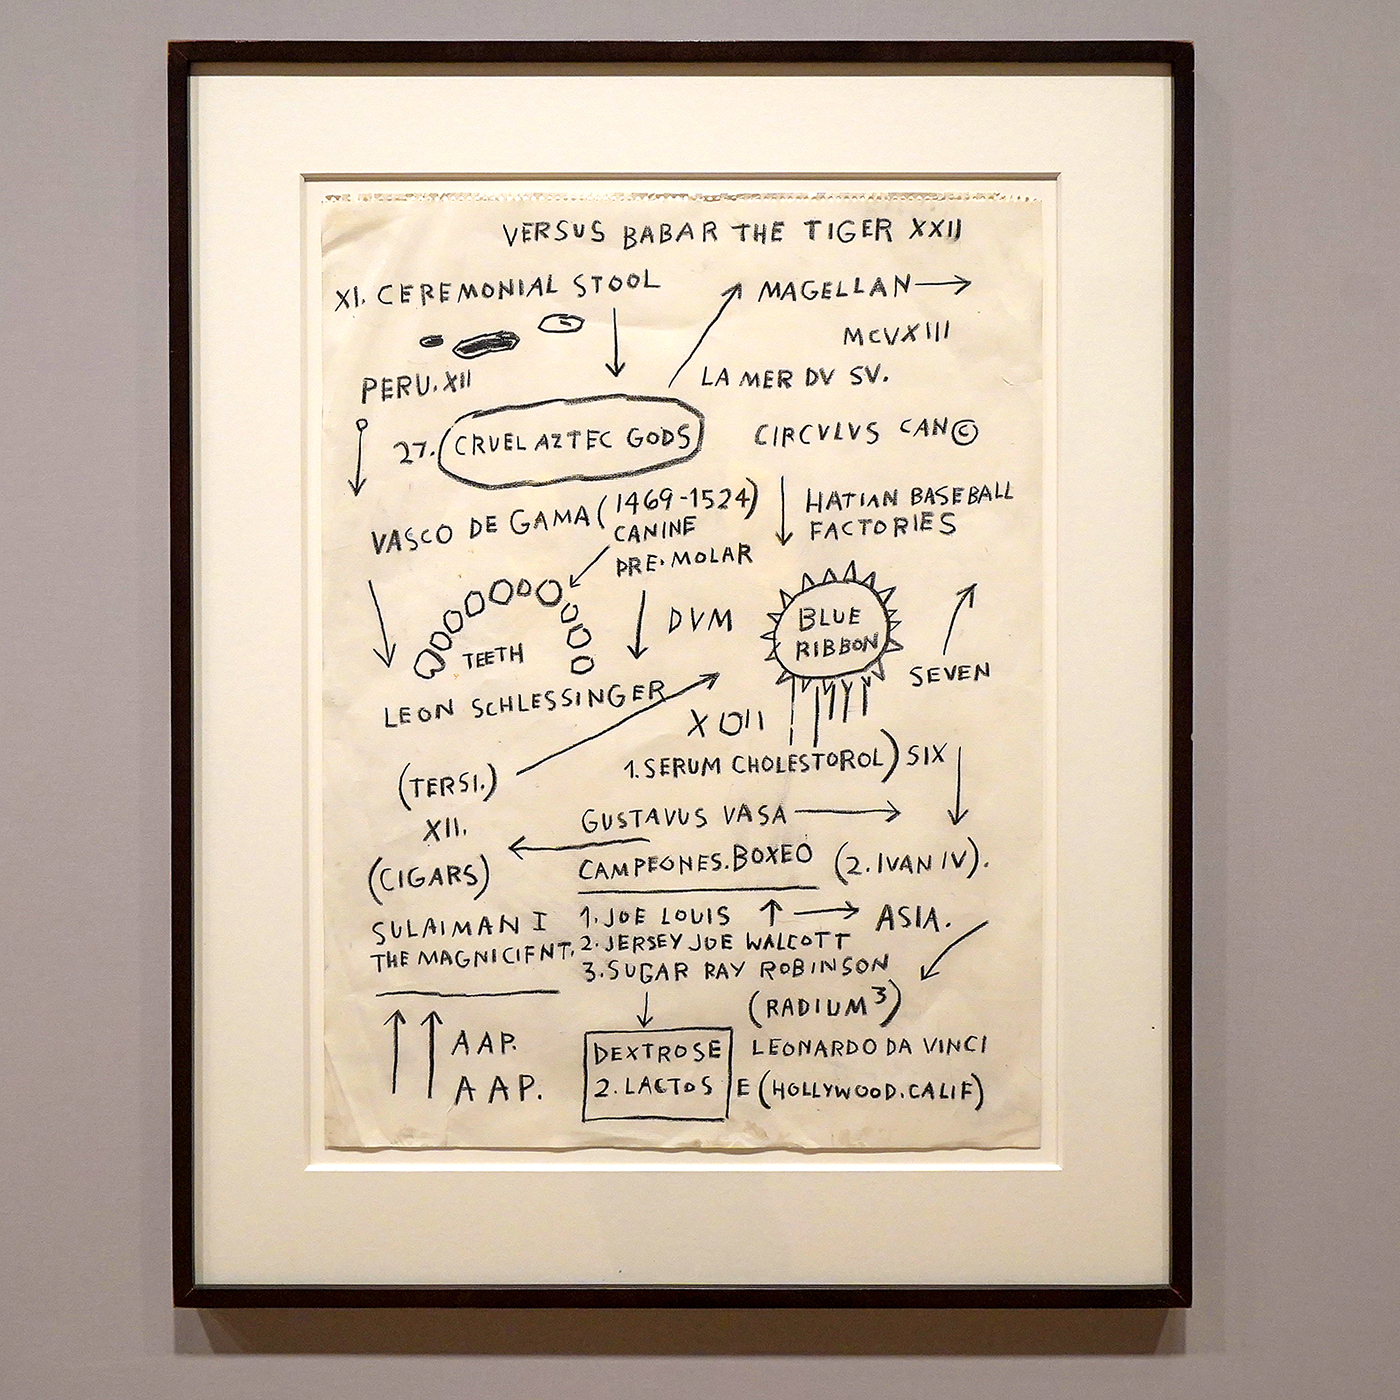 VERSUS BABAR THE TIGER XXII
XI. CEREMONIAL STOOL
MAGELLAN
MCVXIII
PERU. XII
LA MER DV SV.
27. CRUEL AZTEC GODS
CIRCVLVS CAN©
VASCO DE GAMA (1469-1524)
CANINE
PRE-MOLAR
HATIAN BASEBALL
FACTORIES
TEETH
DVM
BLUE
RIBBON
SEVEN
LEON SCHLESSINGER
XOII
1. SERUM CHOLESTOROL) SIX
(TERSI.)
XII.
(CIGARS)
GUSTAVUS VASA
CAMPEONES. BOXEO
(2. IVAN IV).
SULAIMAN I
THE MAGNICIFNT.
1. JOE LOUIS
2. JERSEY JOE WALCOTT
3. SUGAR RAY ROBINSON
ASIA.
(RADIUM³)
AAP.
AAP.
DEXTROSE
2. LACTOSE
LEONARDO DA VINCI
(HOLLYWOOD. CALIF)